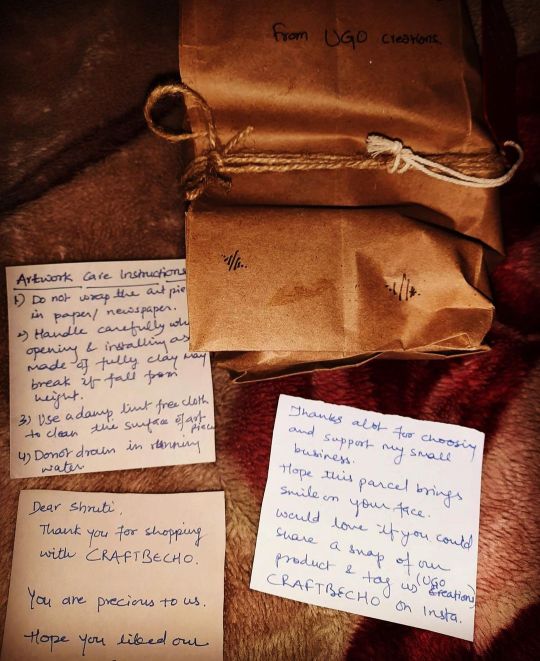 From UGO Creations.
Artwork Care Instructions
1) Do not wrap the art pie
in paper/newspaper.
2) Handle carefully whi
opening & installing as
made of fully clay may
break if fall from
height.
3) Use a damp lint free cloth
to clean the surface of art piece
4) Donot drain in running
water
Dear Shruti,
Thank you for shopping
with CRAFTBECHO.
You are precious to us.
Hope you liked our
Thanks alot for choosing
and support my small
business.
Hope this parcel brings
smile on your face.
would love if you could
share a snap of our
product & tag us (UGO Creations)
CRAFTBECHO on Insta.